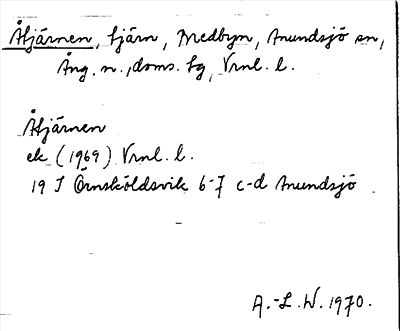 Åtjärnen, tjärn, Medbyn, Anundsjö sn,
Ång. n., doms. hg, Vrnl. l.
Åtjärnen
ek (1969) Vrnl. l.
19 I Örnsköldsvik 6-7 c-d Anundsjö
A.-L. W. 1970.